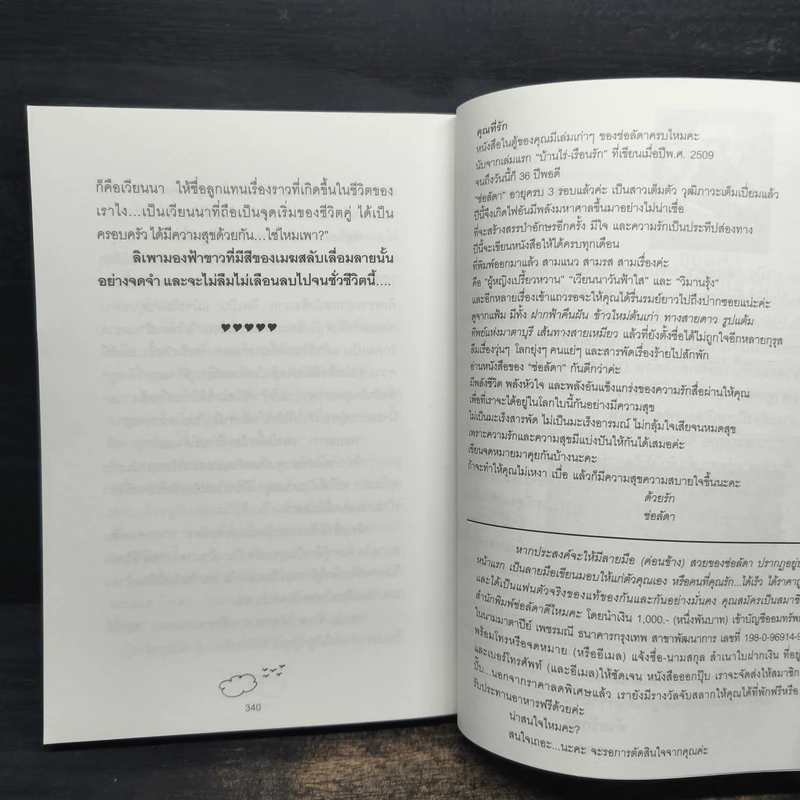 ก็คือเวียนนา ให้ชื่อลูกแทนเรื่องราวที่เกิดขึ้นในชีวิตของ
เราไง...เป็นเวียนนาที่ถือเป็นจุดเริ่มของชีวิตคู่ ได้เป็น
ครอบครัว ได้มีความสุขด้วยกัน...ใช่ไหมเพา?"
ลิเพามองฟ้าขาวที่มีสีของเมฆสลับเลื่อมลายนั้น
อย่างจดจำ และจะไม่ลืมไม่เลือนลบไปจนชั่วชีวิตนี้....
♥♥♥♥♥
340
คุณที่รัก
หนังสือในตู้ของคุณมีเล่มเก่าๆ ของช่อลัดาครบไหมคะ
นับจากเล่มแรก "บ้านไร่-เรือนรัก" ที่เขียนเมื่อปีพ.ศ. 2509
จนถึงวันนี้ก็ 36 ปีพอดี
"ช่อลัดา" อายุครบ 3 รอบแล้วค่ะ เป็นสาวเต็มตัว วุฒิภาวะเต็มเปี่ยมแล้ว
ปีนี้จึงเกิดไฟอันมีพลังมหาศาลขึ้นมาอย่างไม่น่าเชื่อ
ที่จะสร้างสรรป่าอักษรอีกครั้ง มีใจ และความรักเป็นประทีปส่องทาง
ปีนี้จะเขียนหนังสือให้ได้ครบทุกเดือน
ที่พิมพ์ออกมาแล้ว สามแนว สามรส สามเรื่องค่ะ
คือ "ผู้หญิงเปรี้ยวหวาน" "เวียนนาวันฟ้าใส" และ "วิมานรุ้ง"
และอีกหลายเรื่องเข้าแถวรอจะให้คุณได้รื่นรมย์ยาวไปถึงปากซอยแน่ะค่ะ
ดูจากแฟ้ม มีทั้ง ฝากฟ้าคืนฝัน ข้าวใหม่ต้นเก่า ทางสายดาว รูปแต้ม
ทิพย์แห่งมาตาบุรี เส้นทางสายเหมียว แล้วที่ยังตั้งชื่อได้ไม่ถูกใจอีกหลายกุรุส
ลืมเรื่องวุ่นๆ โลกยุ่งๆ คนแย่ๆ และสารพัดเรื่องร้ายไปสักพัก
อ่านหนังสือของ "ช่อลัดา" กันดีกว่าค่ะ
มีพลังชีวิต พลังหัวใจ และพลังอันแข็งแกร่งของความรักสื่อผ่านให้คุณ
เพื่อที่เราจะได้อยู่ในโลกใบนี้กันอย่างมีความสุข
ไม่เป็นมะเร็งสารพัด ไม่เป็นมะเร็งอารมณ์ ไม่กลุ้มใจเสียจนหมดสุข
เพราะความรักและความสุขมีแบ่งปันให้กันได้เสมอค่ะ
เขียนจดหมายมาคุยกันบ้างนะคะ
ถ้าจะทำให้คุณไม่เหงา เบื่อ แล้วก็มีความสุขความสบายใจขึ้นนะคะ
ด้วยรัก
ช่อลัดา
หากประสงค์จะให้มีลายมือ (ค่อนข้าง) สวยของช่อลัดา ปรากฏอยู่
หน้าแรก เป็นลายมือเขียนมอบให้แก่ตัวคุณเอง หรือคนที่คุณรัก...ได้เร็ว ได้ราคา
และได้เป็นแฟนตัวจริงของแท้ของกันและกันอย่างมั่นคง คุณสมัครเป็นสมาชิ
สำนักพิมพ์ช่อลัดาดีไหมคะ โดยนำเงิน 1,000.- (หนึ่งพันบาท) เข้าบัญชีออมทรัพย์
ในนามมาตาปีย์ เพชรมณี ธนาคารกรุงเทพ สาขาพัฒนาการ เลขที่ 198-0-96914-9
พร้อมโทรหรือจดหมาย (หรืออีเมล) แจ้งชื่อ-นามสกุล สำเนาใบฝากเงิน ที่อยู่
และเบอร์โทรศัพท์ (และอีเมล)ให้ชัดเจน หนังสือออกปุ๊บ เราจะจัดส่งให้สมาชิก
ปั๊บ...นอกจากราคาลดพิเศษแล้ว เรายังมีรางวัลจับสลากให้คุณได้ที่พักฟรีหรือ
รับประทานอาหารฟรีด้วยค่ะ
น่าสนใจไหมคะ?
สนใจเถอะ...นะคะ จะรอการตัดสินใจจากคุณค่ะ